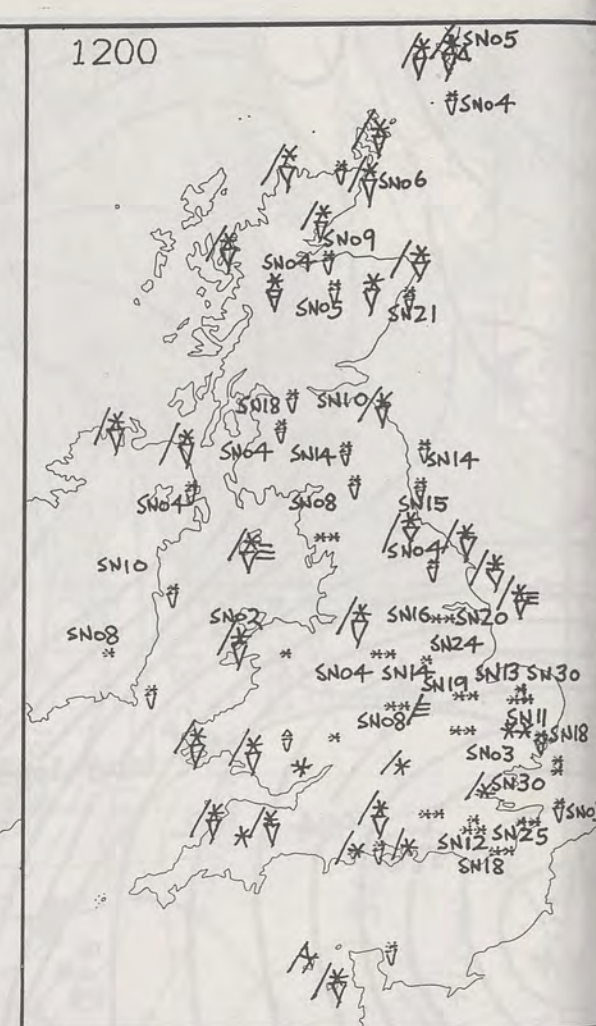 1200
SN05
SN04
SN06
SN09
SN04
SN05
SN21
SN18 SN10
SN04 SN14 SN14
SN04 SN08 SN15
SN04
SN10
SN02 SN16 SN20
SN08 SN24
SN04 SN14 SN13 SN30
SN19
SN08 SN11
SN18
SN03
SN30
SN12 SN25
SN18